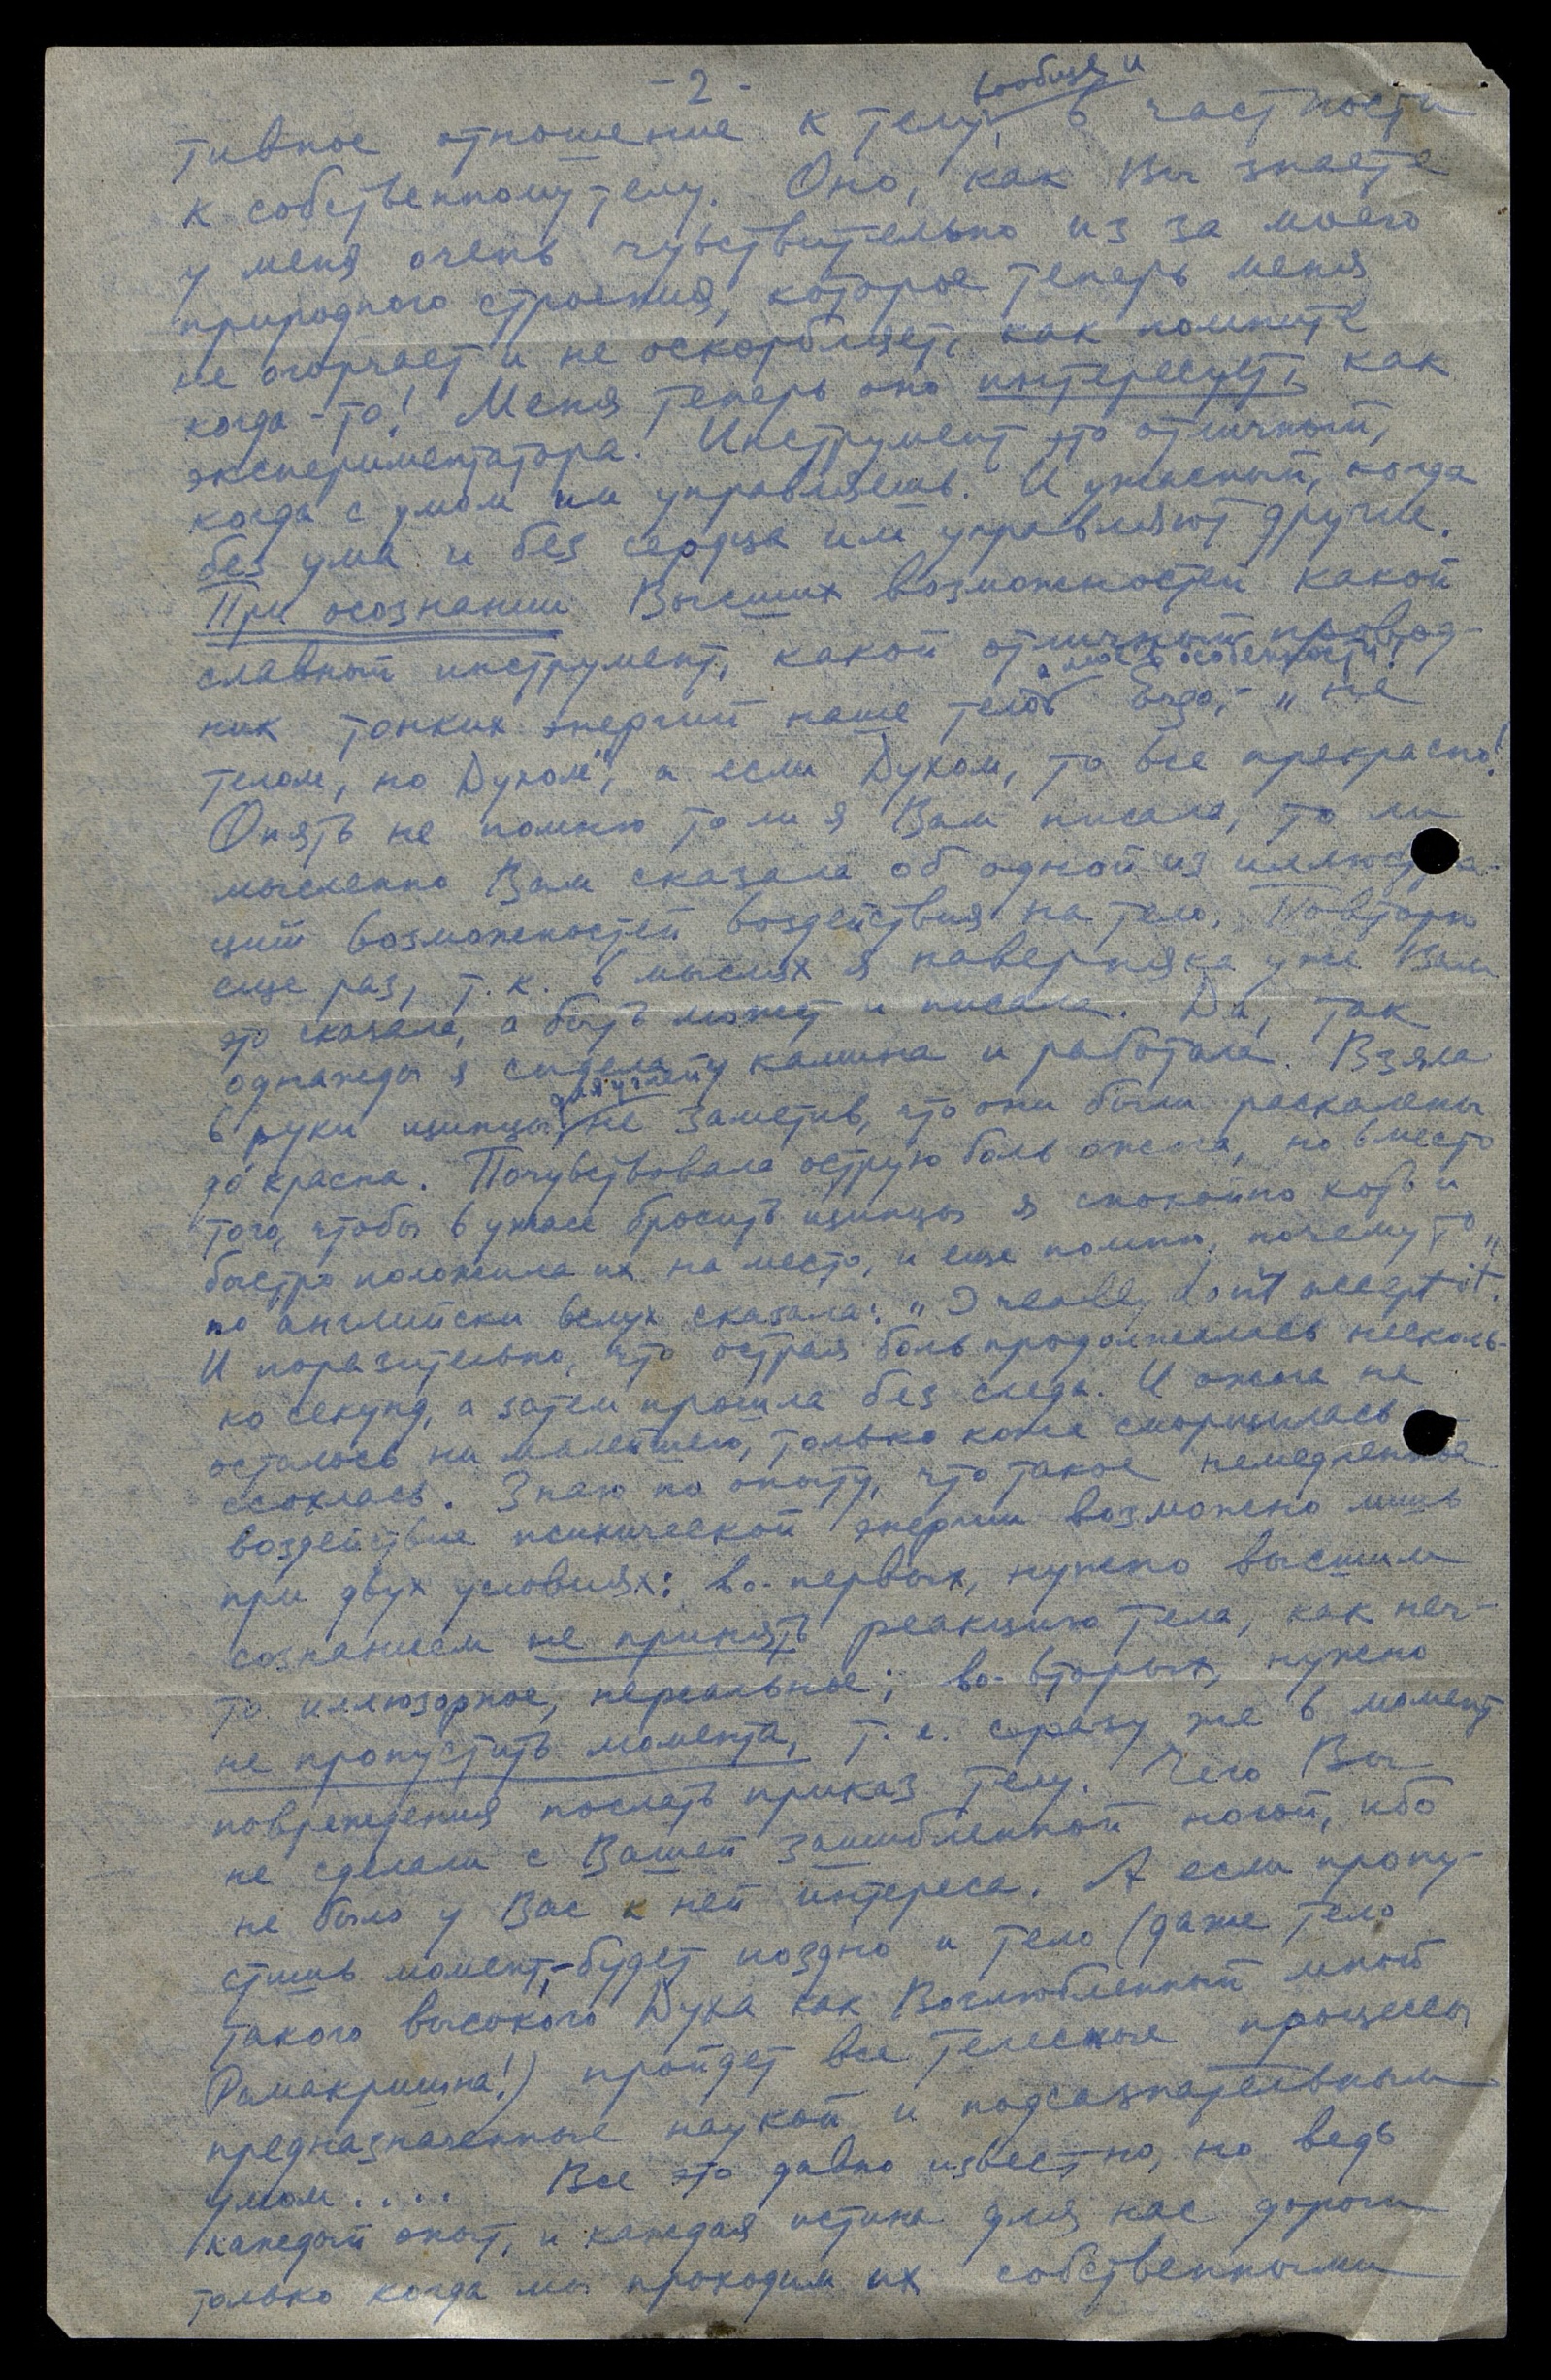 - 2 -
вообще и
тивное отношение к телу, в частности
к собственному телу. Оно, как Вы знаете
у меня очень чувствительно из за моего
природного строения, которое теперь меня
не огорчает и не оскорбляет, как помните
когда-то! Меня теперь оно интересует, как
экспериментатора. Инструмент это отличный,
когда с умом им управляешь. И ужасный, когда
без ума и без сердца им управляют другие.
При осознании Высших возможностей какой
славный инструмент, какой отличный провод-
а мое в особенности!
ник тонких энергий наше тело Буде, - „не
телом, но Духом", а если Духом, то все прекрасно!
Опять не помню то ли я Вам писала, то ли
мысленно Вам сказала об одной из иллюстра-
ций возможностей воздействия на тело. Повторю
еще раз, т.к. в мыслях я наверняка уже Вам
это сказала, а быть может и писала. Да, так
однажды я сидела у камина и работала. Взяла
для углей
в руки щипцы, не заметив, что они были раскалены
до красна. Почувствовала острую боль ожога, но вместо
того, чтобы в ужасе бросить щипцы я спокойно хотя и
быстро положила их на место, и еще помню, почему то
по английски вслух сказала: „I really don't accept it."
И поразительно, что острая боль продолжалась несколь-
ко секунд, а затем прошла без следа. И ожога не
осталось ни малейшего, только кожа сморщилась и
ссохлась. Знаю по опыту, что такое немедленное
воздействие психической энергии возможно лишь
при двух условиях: во-первых, нужно высшим
сознанием не принять реакцию тела, как неч-
то иллюзорное, нереальное; во-вторых, нужно
не пропустить момента, т.е. сразу же в момент
повреждения послать приказ телу. Чего Вы
не сделали с Вашей зашибленной ногой, ибо
не было у Вас к ней интереса. А если пропу-
стишь момент, - будет поздно и тело (даже тело
такого высокого Духа как Возлюбленный мной
Рамакришна!) пройдет все телесные процессы
предназначенные наукой и подсознательным
умом.... Все это давно известно, но ведь
каждый опыт, и каждая истина для нас дороги
только когда мы проходим их собственными